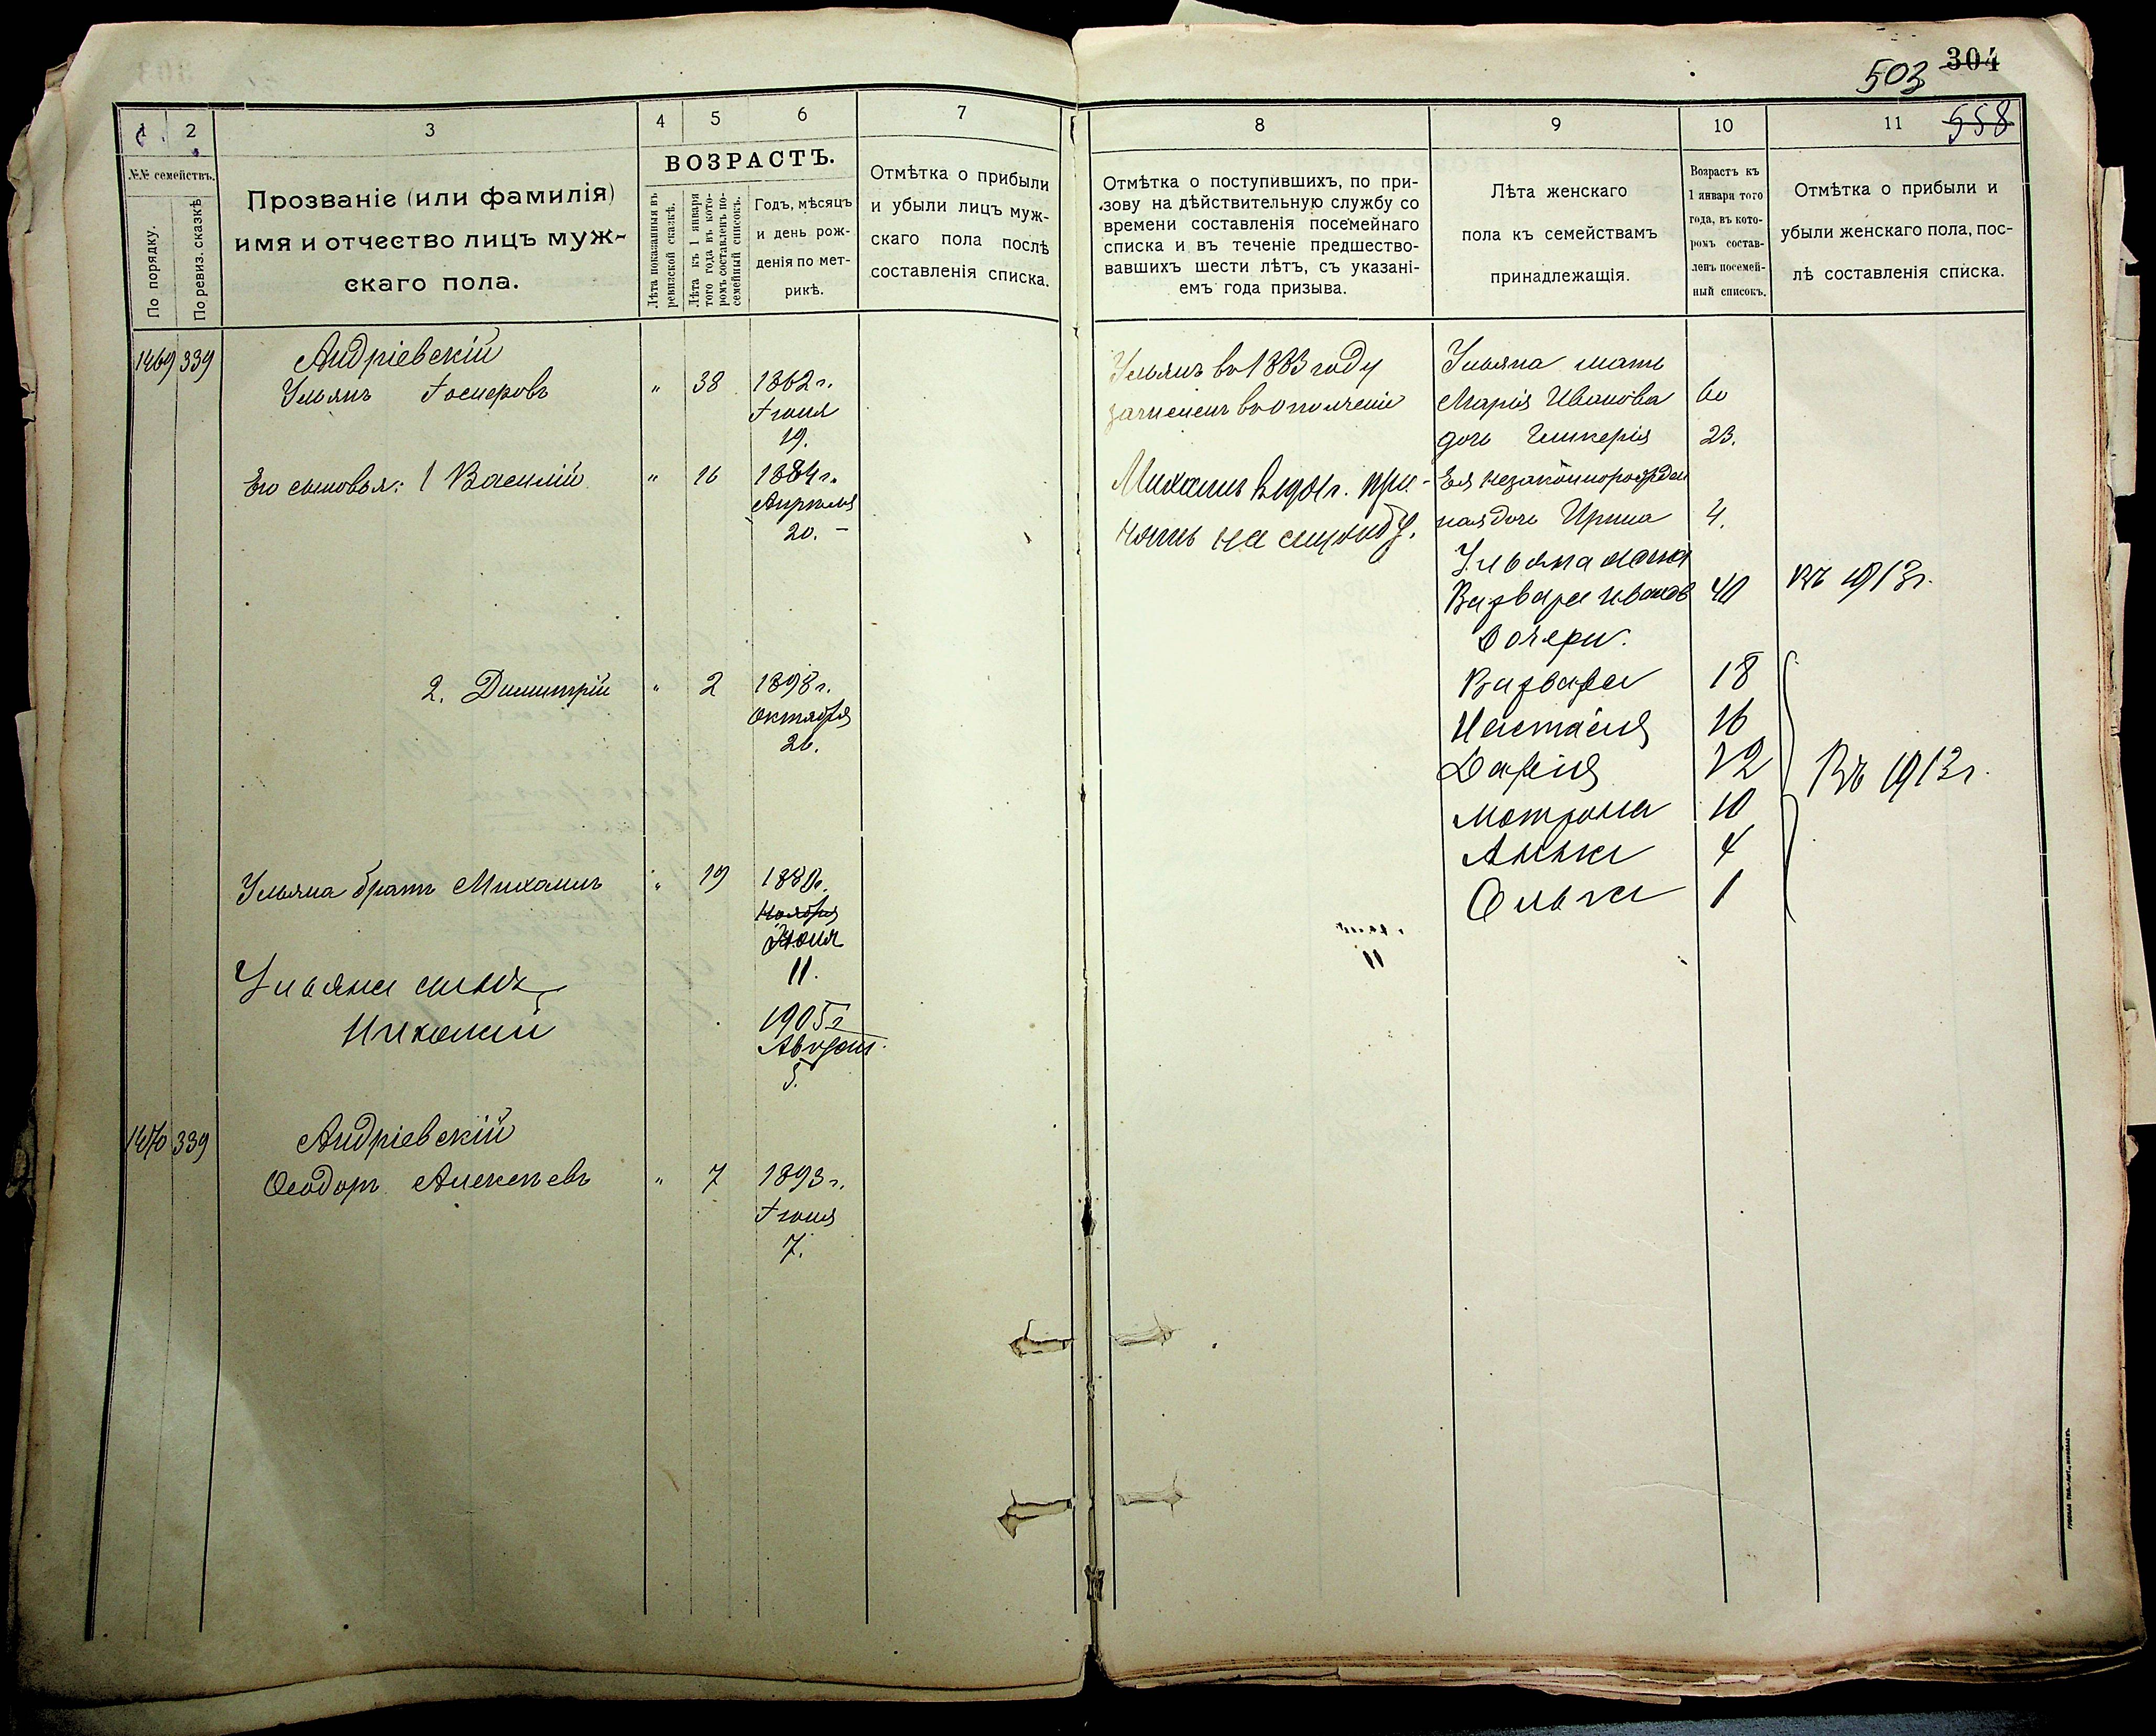 503 304
558
1 2 3 4 5 6 7
№№ семействъ.
По порядку.
По ревиз. сказкѣ
Прозваніе (или фамилія)
имя и отчество лицъ муж-
скаго пола.
ВОЗРАСТЪ.
Лѣта показанныя въ
ревизской сказкѣ.
Лѣта къ 1 января
того года въ кото-
ромъ составленъ по-
семейный списокъ.
Годъ, мѣсяцъ
и день рож-
денія по мет-
рикѣ.
Отмѣтка о прибыли
и убыли лицъ муж-
скаго пола послѣ
составленія списка.
1469 339 Андріевскій
Ульянъ " 38 1862 г.
Іюня
19.
Его сыновья: 1 Василій " 16 1884 г.
Апрѣля
20. –
2. Димитрій " 2 1898 г.
Октября
26.
Ульяна братъ Михаилъ " 19 1880г.
Ноября
Іюня
11.
Ульяна сынъ
Николай 1905 г
Август.
5.
1470 339 Андріевскій
Ѳеодоръ Алексѣевъ " 7 1893 г.
Іюня
7.
8 9 10 11
Отмѣтка о поступившихъ, по при-
зову на дѣйствительную службу со
времени составленія посемейнаго
списка и въ теченіе предшество-
вавшихъ шести лѣтъ, съ указані-
емъ года призыва.
Лѣта женскаго
пола къ семействамъ
принадлежащія.
Возрастъ къ
1 января того
года, въ кото-
ромъ состав-
ленъ посемей-
ный списокъ.
Отмѣтка о прибыли и
убыли женскаго пола, пос-
лѣ составленія списка.
Ульянъ въ 1883 году
зачисленъ въ ополченіе
Михаилъ в 1901 г. при-
нятъ на службу.
Ульяна мать
Марія Иванова 60
дочь Гликерія 23.
Ея незаконнорожден
ная дочь Ирина 4.
Ульяна жена
Варвара Иванов 40 Въ 1913г.
Дочери.
Варвара 18
Настасія 16
Дарія 12 Въ 1913 г.
Мотрона 10
Анна 4
Ольга 1